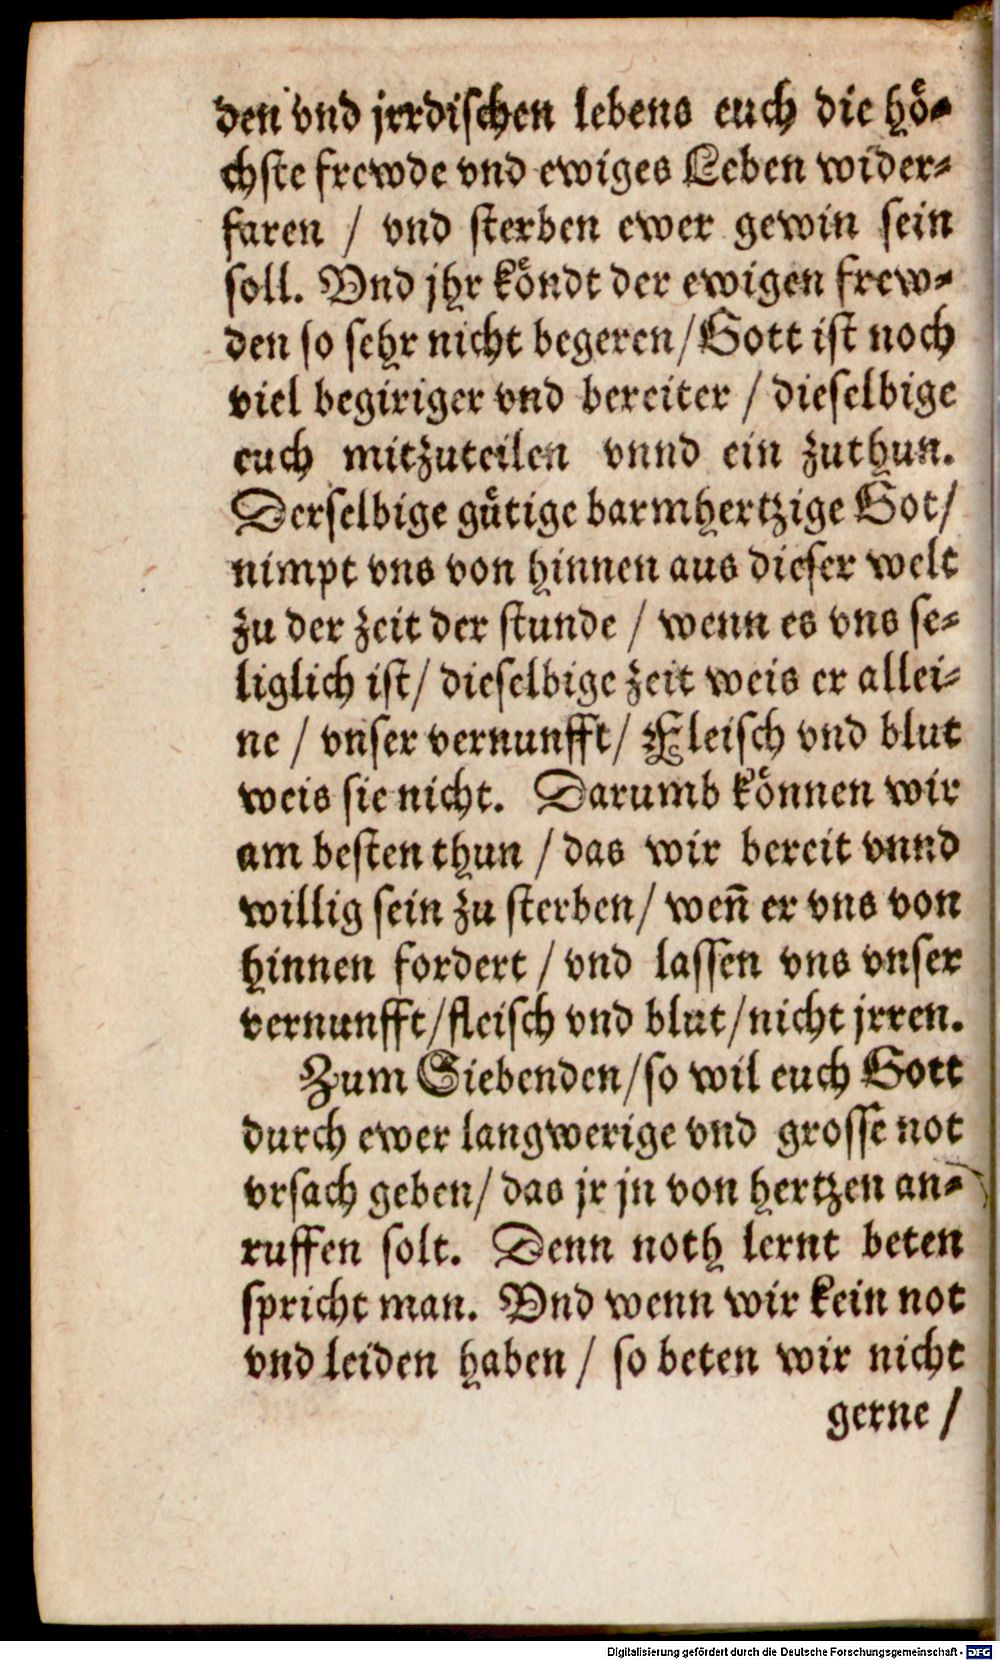 den vnd jrrdischen lebens euch die hö-
chste frewde vnd ewiges Leben wider-
faren / vnd sterben ewer gewin sein
soll. Vnd jhr köndt der ewigen frew-
den so sehr nicht begeren/Gott ist noch
viel begiriger vnd bereiter / dieselbige
euch mitzuteilen vnnd ein zuthun.
Derselbige gütige barmhertzige Got/
nimpt vns von hinnen aus dieser welt
zu der zeit der stunde / wenn es vns se-
liglich ist/ dieselbige zeit weis er allei-
ne / vnser vernunfft/ Fleisch vnd blut
weis sie nicht. Darumb können wir
am besten thun / das wir bereit vnnd
willig sein zu sterben/ weñ er vns von
hinnen fordert / vnd lassen vns vnser
vernunfft/fleisch vnd blut/nicht jrren.
Zum Siebenden/so wil euch Gott
durch ewer langwerige vnd grosse not
vrsach geben/ das jr jn von hertzen an-
ruffen solt. Denn noth lernt beten
spricht man. Vnd wenn wir kein not
vnd leiden haben / so beten wir nicht
gerne /
Digitalisierung gefördert durch die Deutsche Forschungsgemeinschaft - DFG